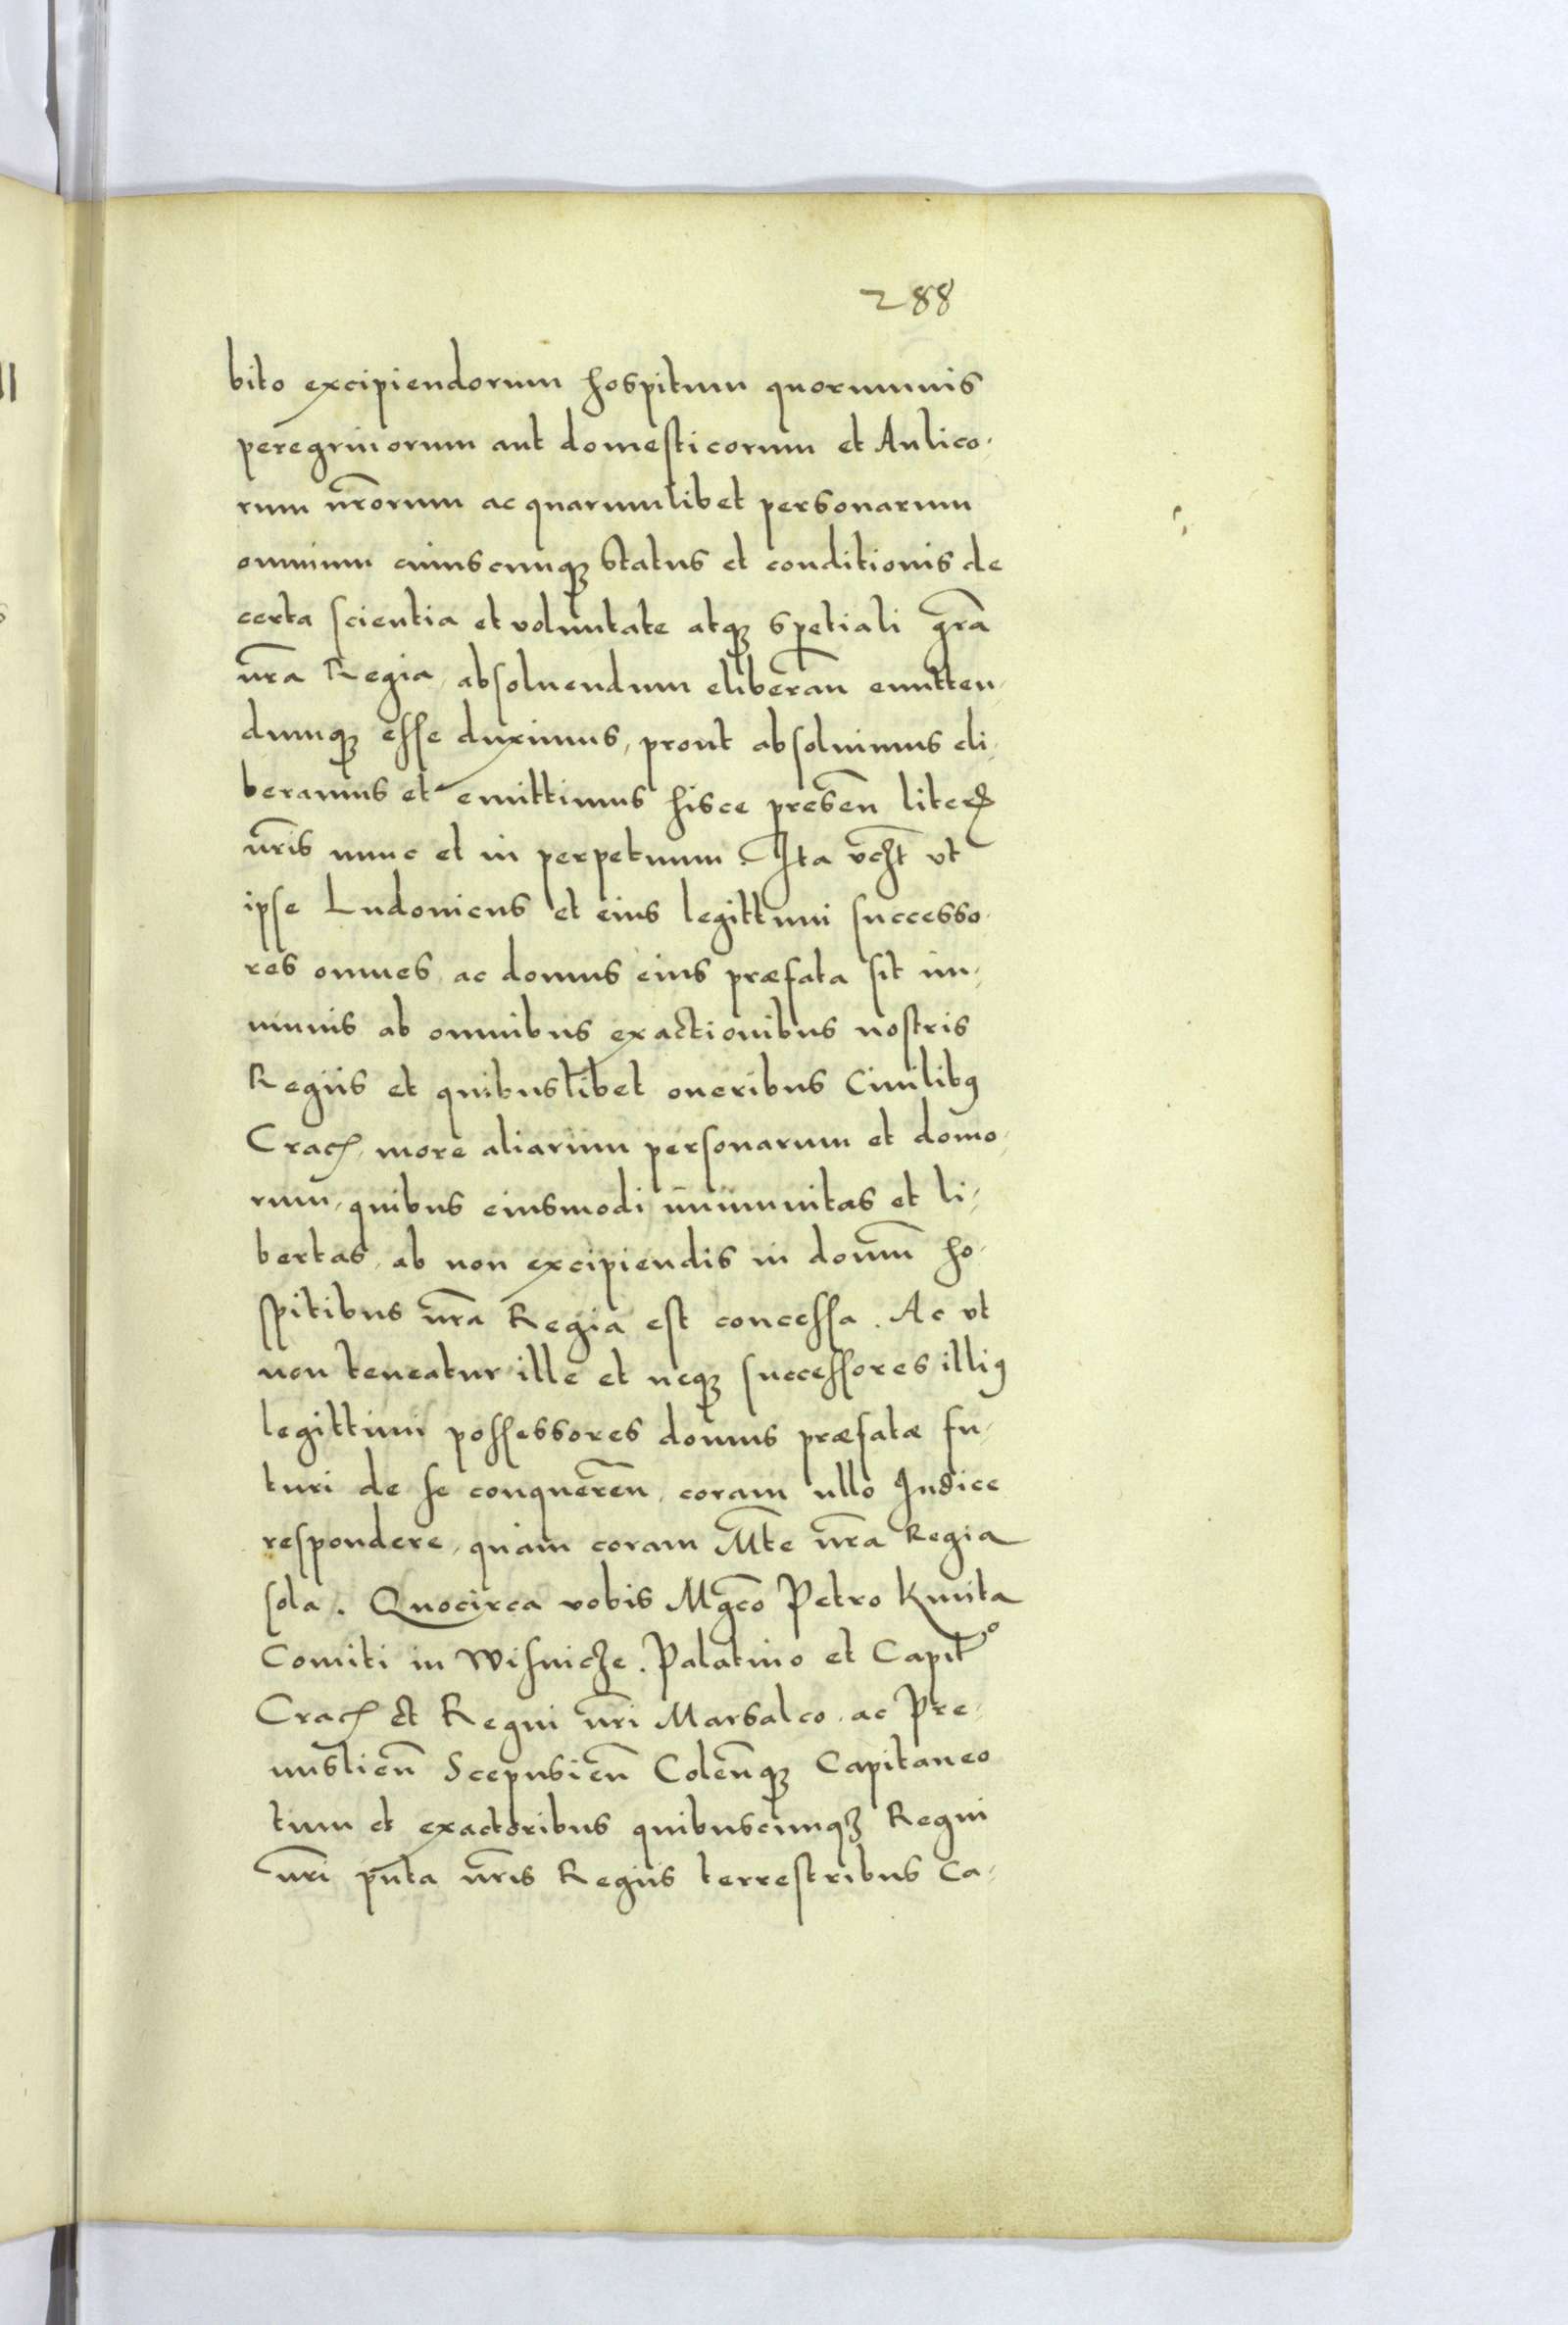 288
bito excipiendorum hospitum quorumuis
peregrinorum aut domesticorum et Aulico-
rum nr̃orum ac quarumlibet personarum
omnium cuiuscunqꝫ status et conditionis de
certa scientia et voluntate atqꝫ spetiali gr̃a
nr̃a Regia, absoluendum eliberan̄ emitten-
dumqꝫ esse duximus, prout absoluimus eli-
beramus et emittimus hisce presen̄ literꝭ
nr̃is nunc et in perpetuum. Ita vcꝫt vt
ipse Ludouicus et eius legittimi successo-
res omnes, ac domus eius præfata sit im-
munis ab omnibus exactionibus nostris
Regiis et quibuslibet oneribus Ciuilibꝰ
Cracꝭ, more aliarum personarum et domo-
rum, quibus eiusmodi immunitas et li-
bertas, ab non excipiendis in domum̄ ho-
spitibus nr̃a Regia est concessa. Ac vt
non teneatur ille et neqꝫ successores illiꝰ
legittimi possessores domus præfatæ fu-
turi de se conqueren̄, coram ullo Iudice
respondere, quam coram Mt̃e nr̃a Regia
sola. Quocirca vobis Mg̃co Petro Kmita
Comiti in Wisnicze. Palatino et Capit̃º
Cracꝭ et Regni nr̃i Marsalco. ac Pre-
misl̃ien̄ Scepusien̄ Colen̄qꝫ Capitaneo
tum et exactoribus quibuscunqꝫ Regni
nr̃i puta nr̃is Regiis terrestribus Ca-